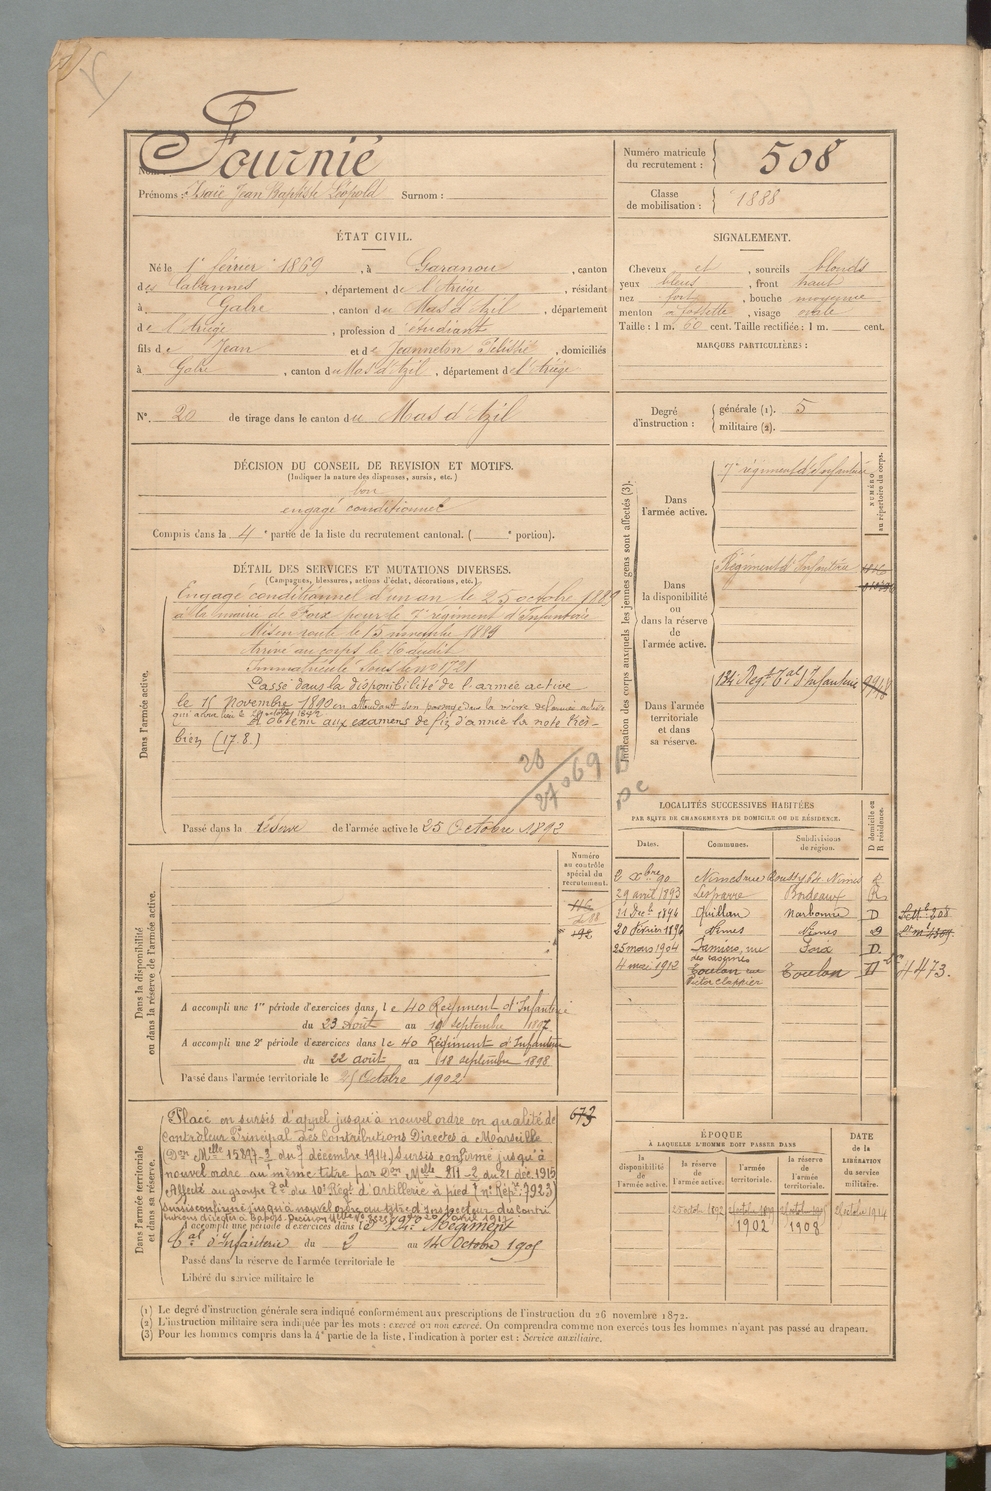 Nom : Fournié
Prénoms : Jean Baptiste Léopold Surnom :
ÉTAT CIVIL.
Né le 1er février 1869, à Garanou, canton
des Cabannes, département de l'Ariège, résidant
à Gabre, canton du Mas d'Azil, département
de l'Ariège, profession d'étudiant
fils de Jean et de Jeanneton, domiciliés
à Gabre, canton du Mas d'Azil, département de l'Ariège
N°. 20 de tirage dans le canton du Mas d'Azil
DÉCISION DU CONSEIL DE REVISION ET MOTIFS.
(Indiquer la nature des dispenses, sursis, etc.)
bon
engagé conditionnel
Compris dans la 4e partie de la liste du recrutement cantonal. ( e portion).
DÉTAIL DES SERVICES ET MUTATIONS DIVERSES.
(Campagnes, blessures, actions d'éclat, décorations, etc.)
Dans l'armée active.
Engagé conditionnel d'un an le 25 octobre 1889
à la mairie de Foix pour le 7e régiment d'Infanterie
Mis en route le 15 novembre 1889
Arrivé au corps le 16 audit
Immatriculé sous le n° 1721
Passé dans la disponibilité de l'armée active
le 15 Novembre 1890 en attendant son passage dans la réserve de l'armée active
qui aura lieu le
A obtenu aux examens de fin d'année la note très-
bien (17.8.)
Passé dans la réserve de l'armée active le 25 Octobre 1892
Dans la disponibilité
ou dans la réserve de l'armée active.
Numéro
au contrôle
spécial du
recrutement.
A accompli une 1re période d'exercices dans le 40 Régiment d'Infanterie
du 23 août au 19 septembre 1897
A accompli une 2e période d'exercices dans le 40 Régiment d'Infanterie
du 22 août au 18 septembre 1898
Passé dans l'armée territoriale le 25 Octobre 1902
Dans l'armée territoriale
et dans sa réserve.
Placé en sursis d'appel jusqu'à nouvel ordre en qualité de 673
Contrôleur Principal des Contributions Directes à Marseille
(Don Melle 15897-3 du 7 décembre 1914) Sursis confirmé jusqu'à
nouvel ordre au même titre par Don Melle 811-2 du 21 déc 1915
Affecté au groupe tal du 10e Régt d'Artillerie à pied (n° Repre 7923)
Sursis confirmé jusqu'à nouvel ordre au titre d'Inspecteur des Contri
A accompli une période d'exercices dans le 134e Régiment
tal d'Infanterie du 2 au 14 Octobre 1905
Passé dans la réserve de l'armée territoriale le
Libéré du service militaire le
Numéro matricule
du recrutement : 508
Classe
de mobilisation : 1888
SIGNALEMENT.
Cheveux et, sourcils blonds
yeux bleus, front haut
nez fort, bouche moyenne
menton à fossette, visage ovale
Taille : 1 m. 60 cent. Taille rectifiée : 1 m. cent.
MARQUES PARTICULIÈRES :
Degré
d'instruction :
générale (1). 5
militaire (2).
Indication des corps auxquels les jeunes gens sont affectés (3).
NUMÉRO
au répertoire du corps.
Dans
l'armée active.
7e régiment d'Infanterie
Dans
la disponibilité
ou
dans la réserve
de
l'armée active.
Régiment d'Infanterie
Dans l'armée
territoriale
et dans
sa réserve.
134e Régt Tal d'Infanterie
LOCALITÉS SUCCESSIVES HABITÉES
PAR SUITE DE CHANGEMENTS DE DOMICILE OU DE RÉSIDENCE.
Dates. Communes. Subdivisions
de région.
D domicile ou
R résidence.
2 Xbre 90 Nimes rue Roussy 64 Nimes R
29 avril 1893 Lesparre Bordeaux R
11 Dec 1894 Quillan Narbonne D
20 février 1896 Nimes Nimes D
25 mars 1904 Pamiers, rue Foix D.
des casernes
4 mai 1912 Toulon rue Toulon D 4473.
Victor Clappier
ÉPOQUE
À LAQUELLE L'HOMME DOIT PASSER DANS
DATE
de la
LIBÉRATION
du service
militaire.
la
disponibilité
de l'armée
active.
la réserve
de
l'armée active.
l'armée
territoriale.
la réserve
de
l'armée
territoriale.
25 octob 1892
1902 1908
(1) Le degré d'instruction générale sera indiqué conformément aux prescriptions de l'instruction du 26 novembre 1872.
(2) L'instruction militaire sera indiquée par les mots : exercé ou non exercé. On comprendra comme non exercés tous les hommes n'ayant pas passé au drapeau.
(3) Pour les hommes compris dans la 4e partie de la liste, l'indication à porter est : Service auxiliaire.